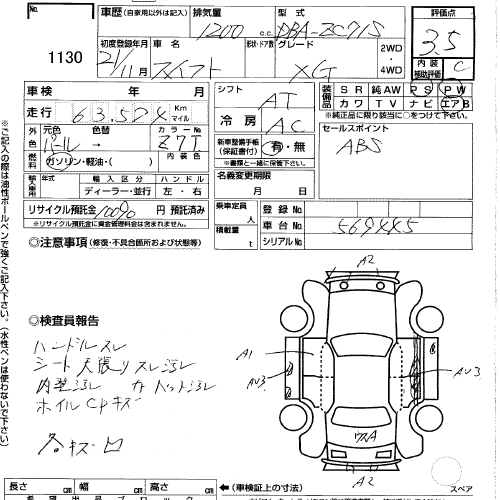 車歴 (自家用以外は記入) 排気量 型式 評価点
1130 1200 c.c. DBA-ZC71S 3.5
初度登録年月 車名 形状・ドア数 グレード 2WD 内装
21/11月 スイフト XG 4WD 補助評価 C
車検 年 月 シフト AT 装備品 SR 純AW PS PW
カワ TV ナビ エアB
走行 63.574 Km マイル 冷房 AC ※純正品に限り該当に○をつけて下さい。
外色 元色 色替 カラーNo セールスポイント
パール → Z7T 新車整備手帳 (保証書付) 有・無 ABS
燃料 ガソリン・軽油・( ) 内装色 ※書類と一緒に保管下さい。
輸入車用 年式 輸入区分 ハンドル 名義変更期限
ディーラー・並行 左・右 月 日
リサイクル預託金 10090 円 預託済み 乗車定員 人 登録No
※リサイクル預託金に資金管理料金は含まれません。 車台No 569XX5
積載量 t シリアルNo
◎注意事項 (修復・不具合箇所および状態等)
A2
◎検査員報告
ハンドルスレ A1
シート 天張りスレ汚レ AU3 AU3
内装汚レ カーペット汚レ
ホイルCPキズ
各キズ凹 ワレA
A2
長さ cm 幅 cm 高さ cm ←(車検証上の寸法) スペア
◎ご記入の際は油性ボールペンで強くご記入下さい。(水性ペンは使わないで下さい)